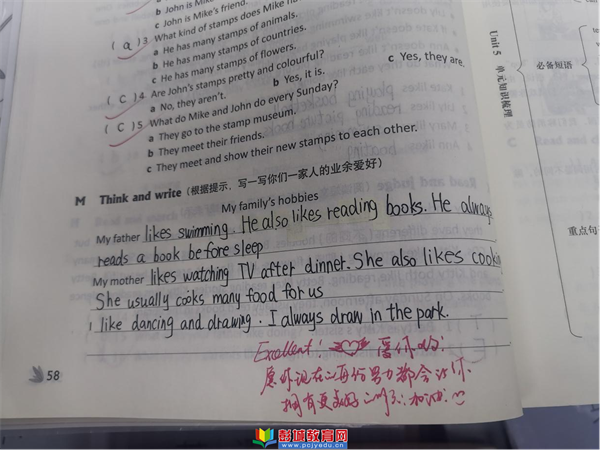 b John is Mike's
c John is Mike's friend.
( a ) 3 What kind of stamps does Mike
a He has many stamps of animals.
b He has many stamps of countries.
c He has many stamps of flowers.
( C ) 4 Are John's stamps pretty and colourful?
a No, they aren't. b Yes, it is. c Yes, they are.
( C ) 5 What do Mike and John do every Sunday?
a They go to the stamp museum.
b They meet their friends.
c They meet and show their new stamps to each other.
M Think and write (根据提示，写一写你们一家人的业余爱好)
My family's hobbies
My father likes swimming. He also likes reading books. He always
reads a book before sleep
My mother likes watching TV after dinner. She also likes cookin
She usually cooks many food for us
I like dancing and drawing. I always draw in the park.
Excellent!
愿你现在的每份努力都会让你
拥有更美好的 加油!
58
Unit 5 单元知识梳理
必备短语
重点句
彭城教育网
www.pcjyedu.cn